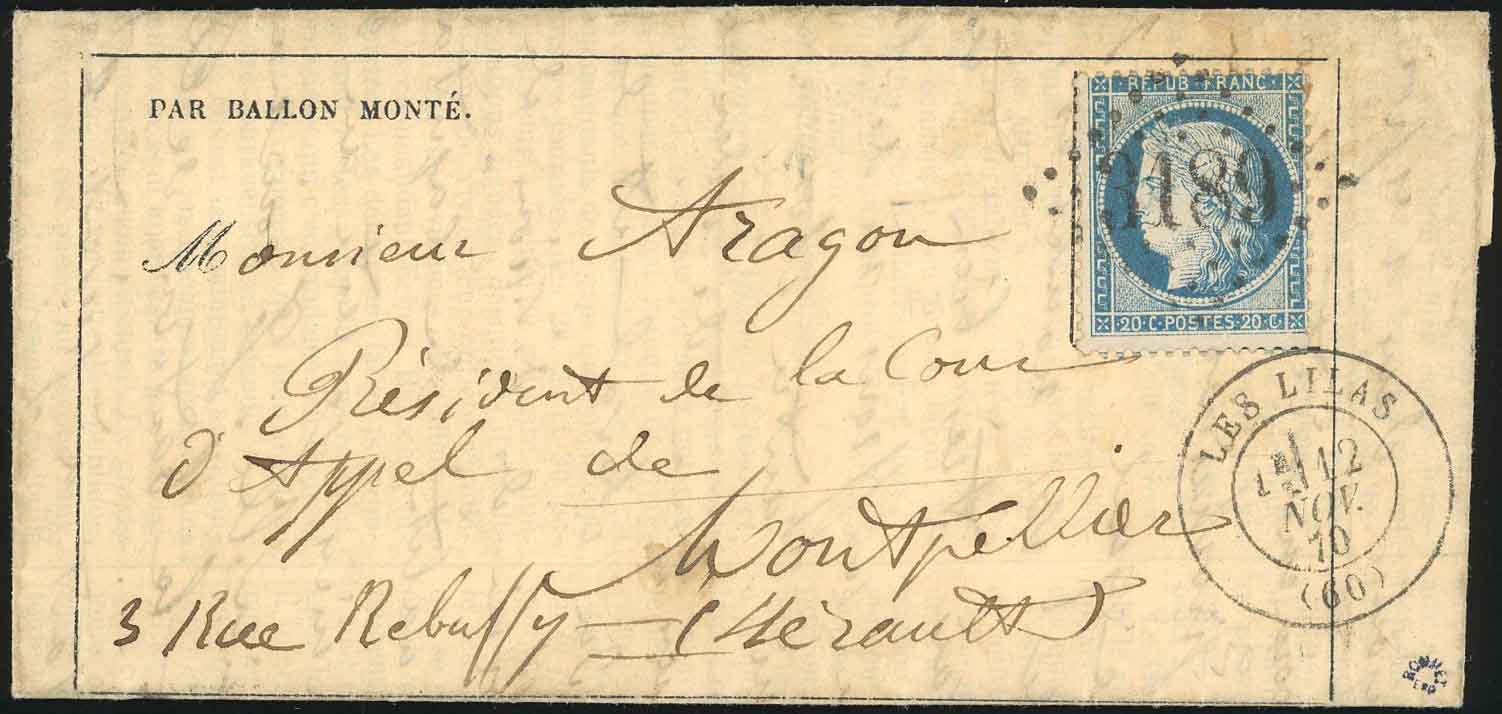 PAR BALLON MONTÉ.
REPUB. FRANC.
3189
20 C. POSTES. 20 C.
Monsieur Aragon
Président de la Cour
d'Appel de
Montpellier
3 Rue Rebuffy (Hérault)
LES LILAS
12
NOV.
70
(60)